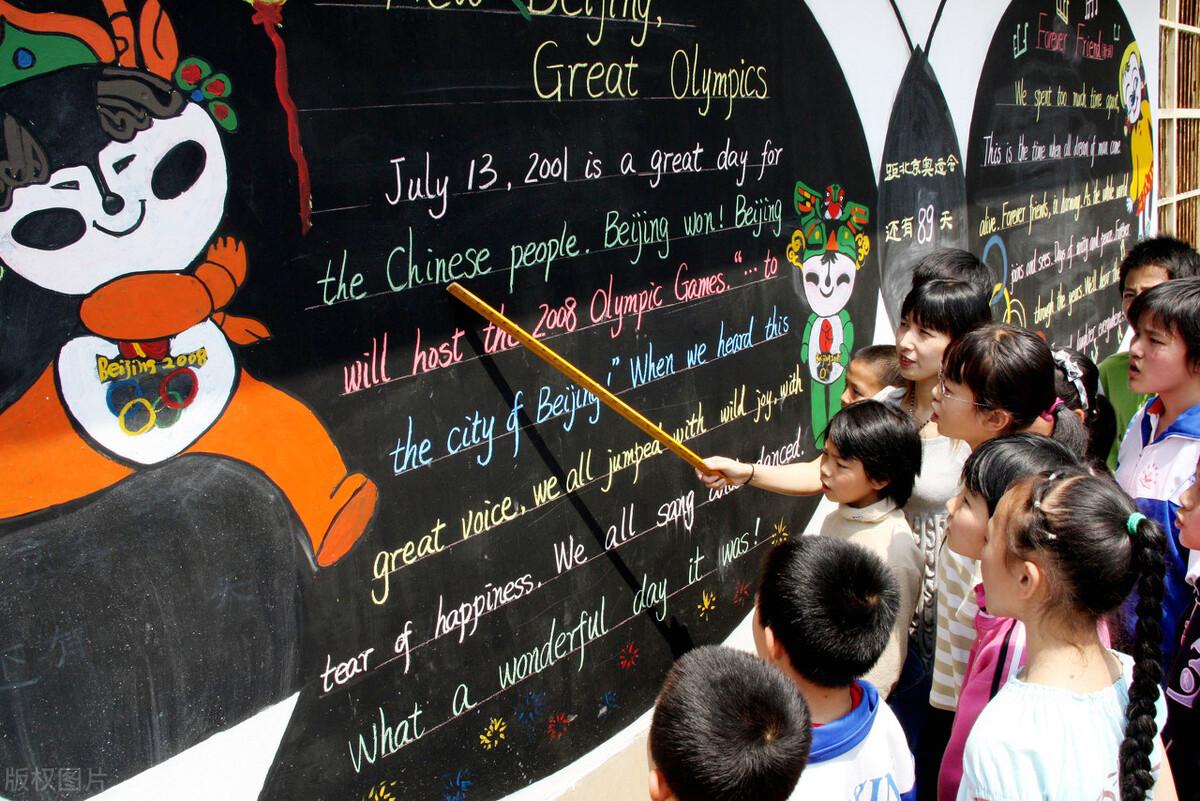 New Beijing,
Great Olympics
July 13, 2001 is a great day for
the Chinese people. Beijing won! Beijing
will host the 2008 Olympic Games. "… to
the city of Beijing!" When we heard this
great voice, we all jumped with wild joy, with
tear of happiness. We all sang and danced.
What a wonderful day it was!
Beijing 2008
距北京奥运会
还有89天
Forever Friend
We spent too much time apart,
This is the time when all dream of man came
alive. Forever friends, in As the whole world
joins and sees. Days of unity and peace. Forever
through the years. We'll hear the
版权图片